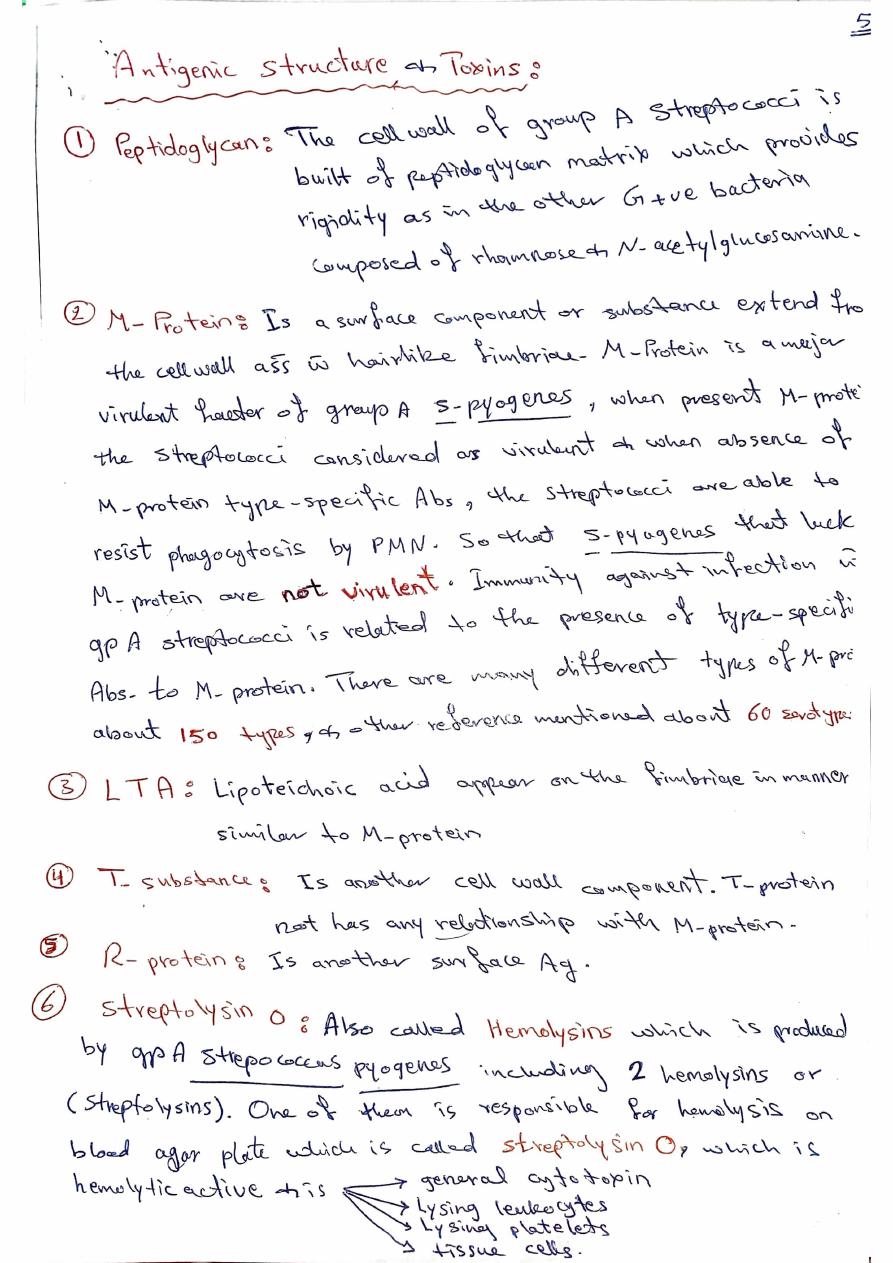 5
Antigenic structure & Toxins:
① Peptidoglycan: The cell wall of group A Streptococci is
built of peptidoglycan matrix which provides
rigidity as in the other G+ve bacteria
composed of rhamnose & N-acetylglucosamine.
② M-Protein: Is a surface component or substance extend fro
the cell wall ass w̄ hairlike fimbriae. M-Protein is a major
virulent facter of group A S-pyogenes, when present M-prote
the Streptococci considered as virulent & when absence of
M-protein type-specific Abs, the streptococci are able to
resist phagocytosis by PMN. So that S-pyogenes that lack
M-protein are not virulent. Immunity against infection w̄
gp A streptococci is related to the presence of type-specifi
Abs. to M-protein. There are many different types of M-pro
about 150 types, & other reference mentioned about 60 serotype
③ LTA: Lipoteichoic acid appear on the fimbriae in manner
similar to M-protein
④ T- substance: Is another cell wall component. T-protein
not has any relationship with M-protein.
⑤ R-protein: Is another surface Ag.
⑥ Streptolysin O: Also called Hemolysins which is produced
by gp A Strepococcus pyogenes including 2 hemolysins or
(Streptolysins). One of them is responsible for hemolysis on
blood agar plate which is called streptolysin O, which is
hemolytic active & is → general cytotoxin
→ Lysing leukocytes
→ Lysing platelets
→ tissue cells.